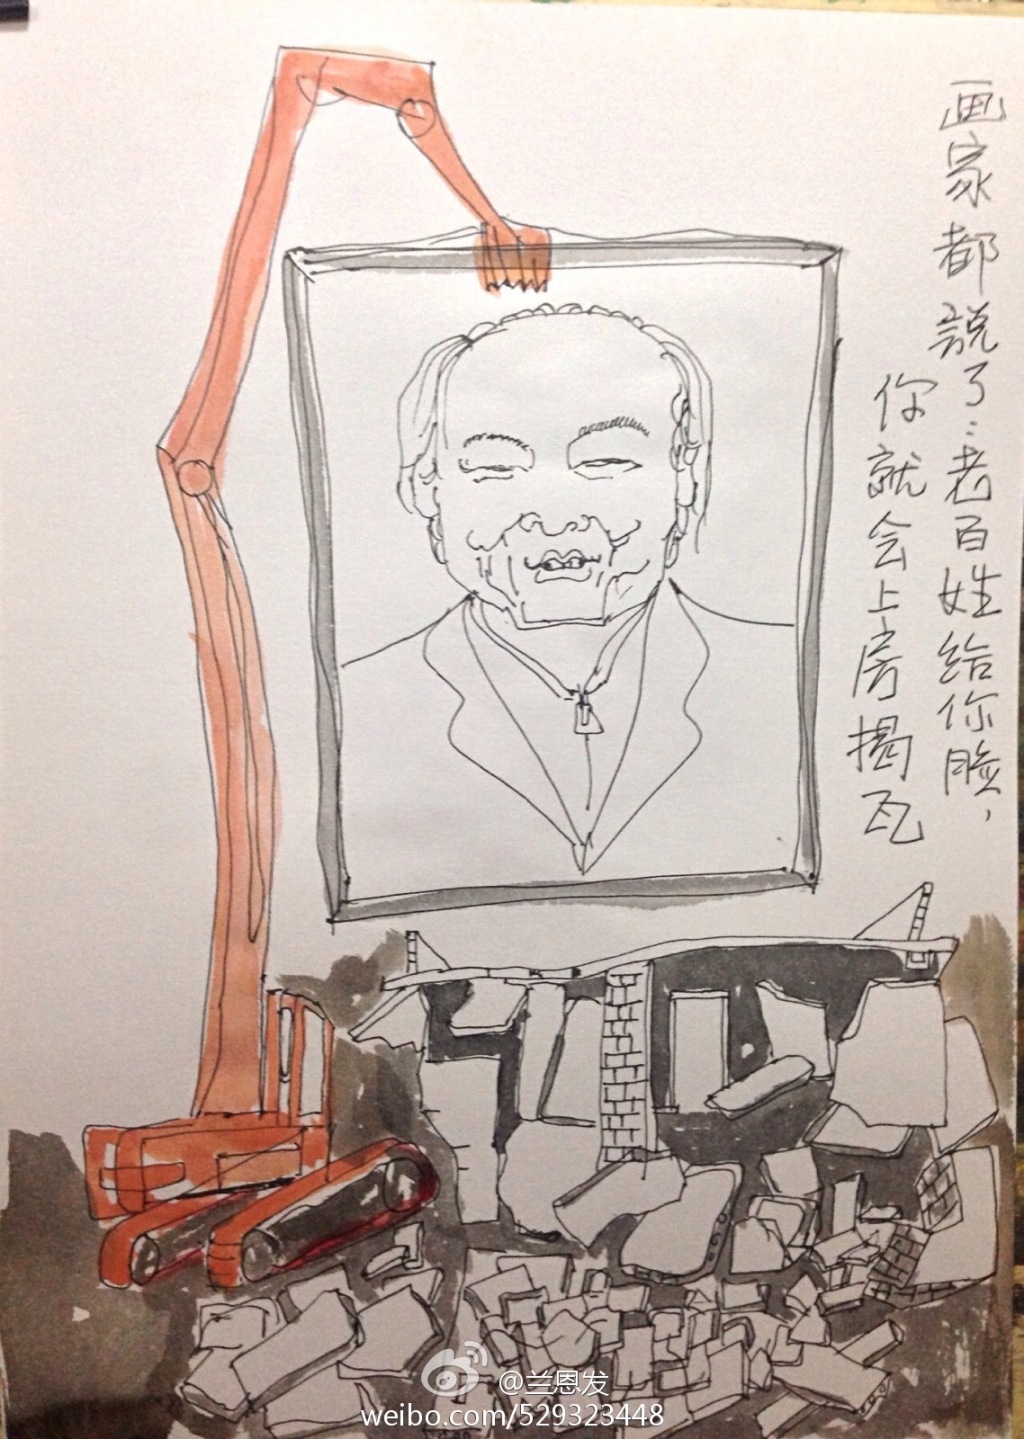 画家都説了：老百姓给你脸，
你就会上房揭瓦
@兰恩发
weibo.com/529323448